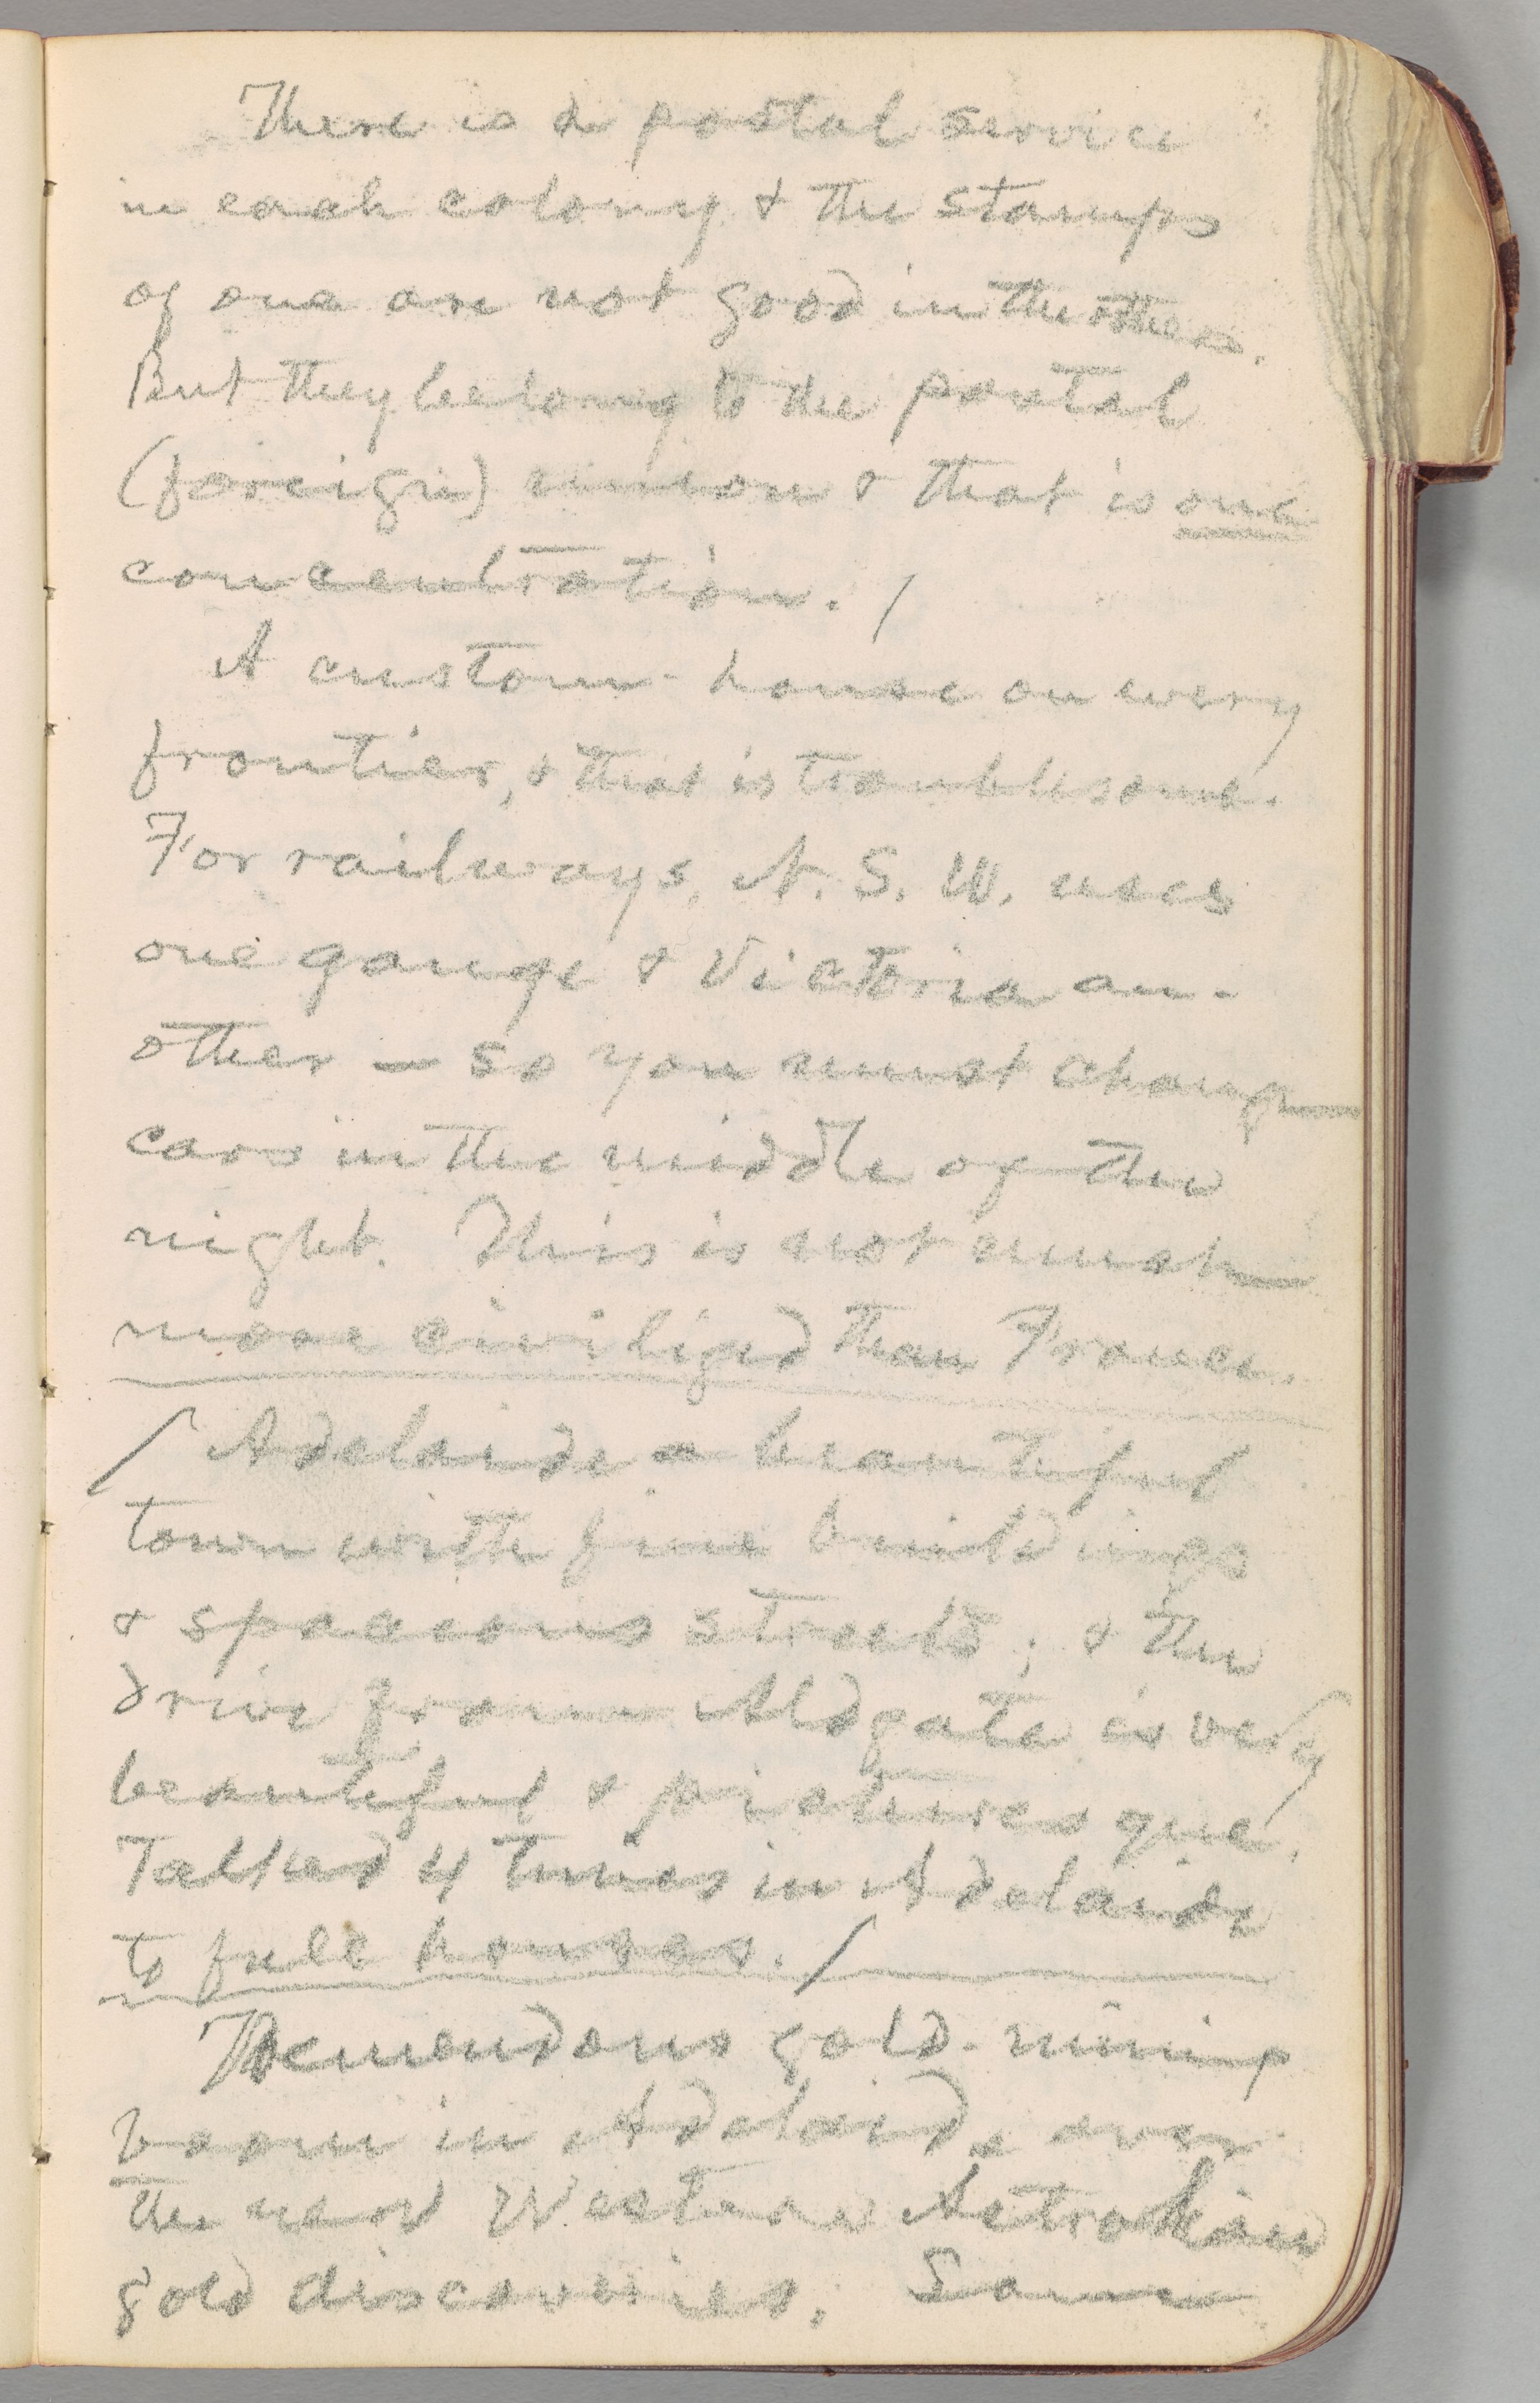 There is a postal service
in each colony & the stamps
of one are not good in the others.
But they belong to the postal
(foreign) union & that is one
concentration. /
A custom-house on every
frontier, & that is troublesome.
For railways, N. S. W. uses
one gauge & Victoria an-
other — so you must change
cars in the middle of the
night. This is not much
more civilized than France.
/ Adelaide a beautiful
town with fine buildings
& spacious streets; & the
drive from Aldgate is very
beautiful & picturesque.
Talked 4 times in Adelaide
to full houses. /
Tremendous gold-mining
boom in Adelaide over
the new Western Astralian
gold discoveries. Some